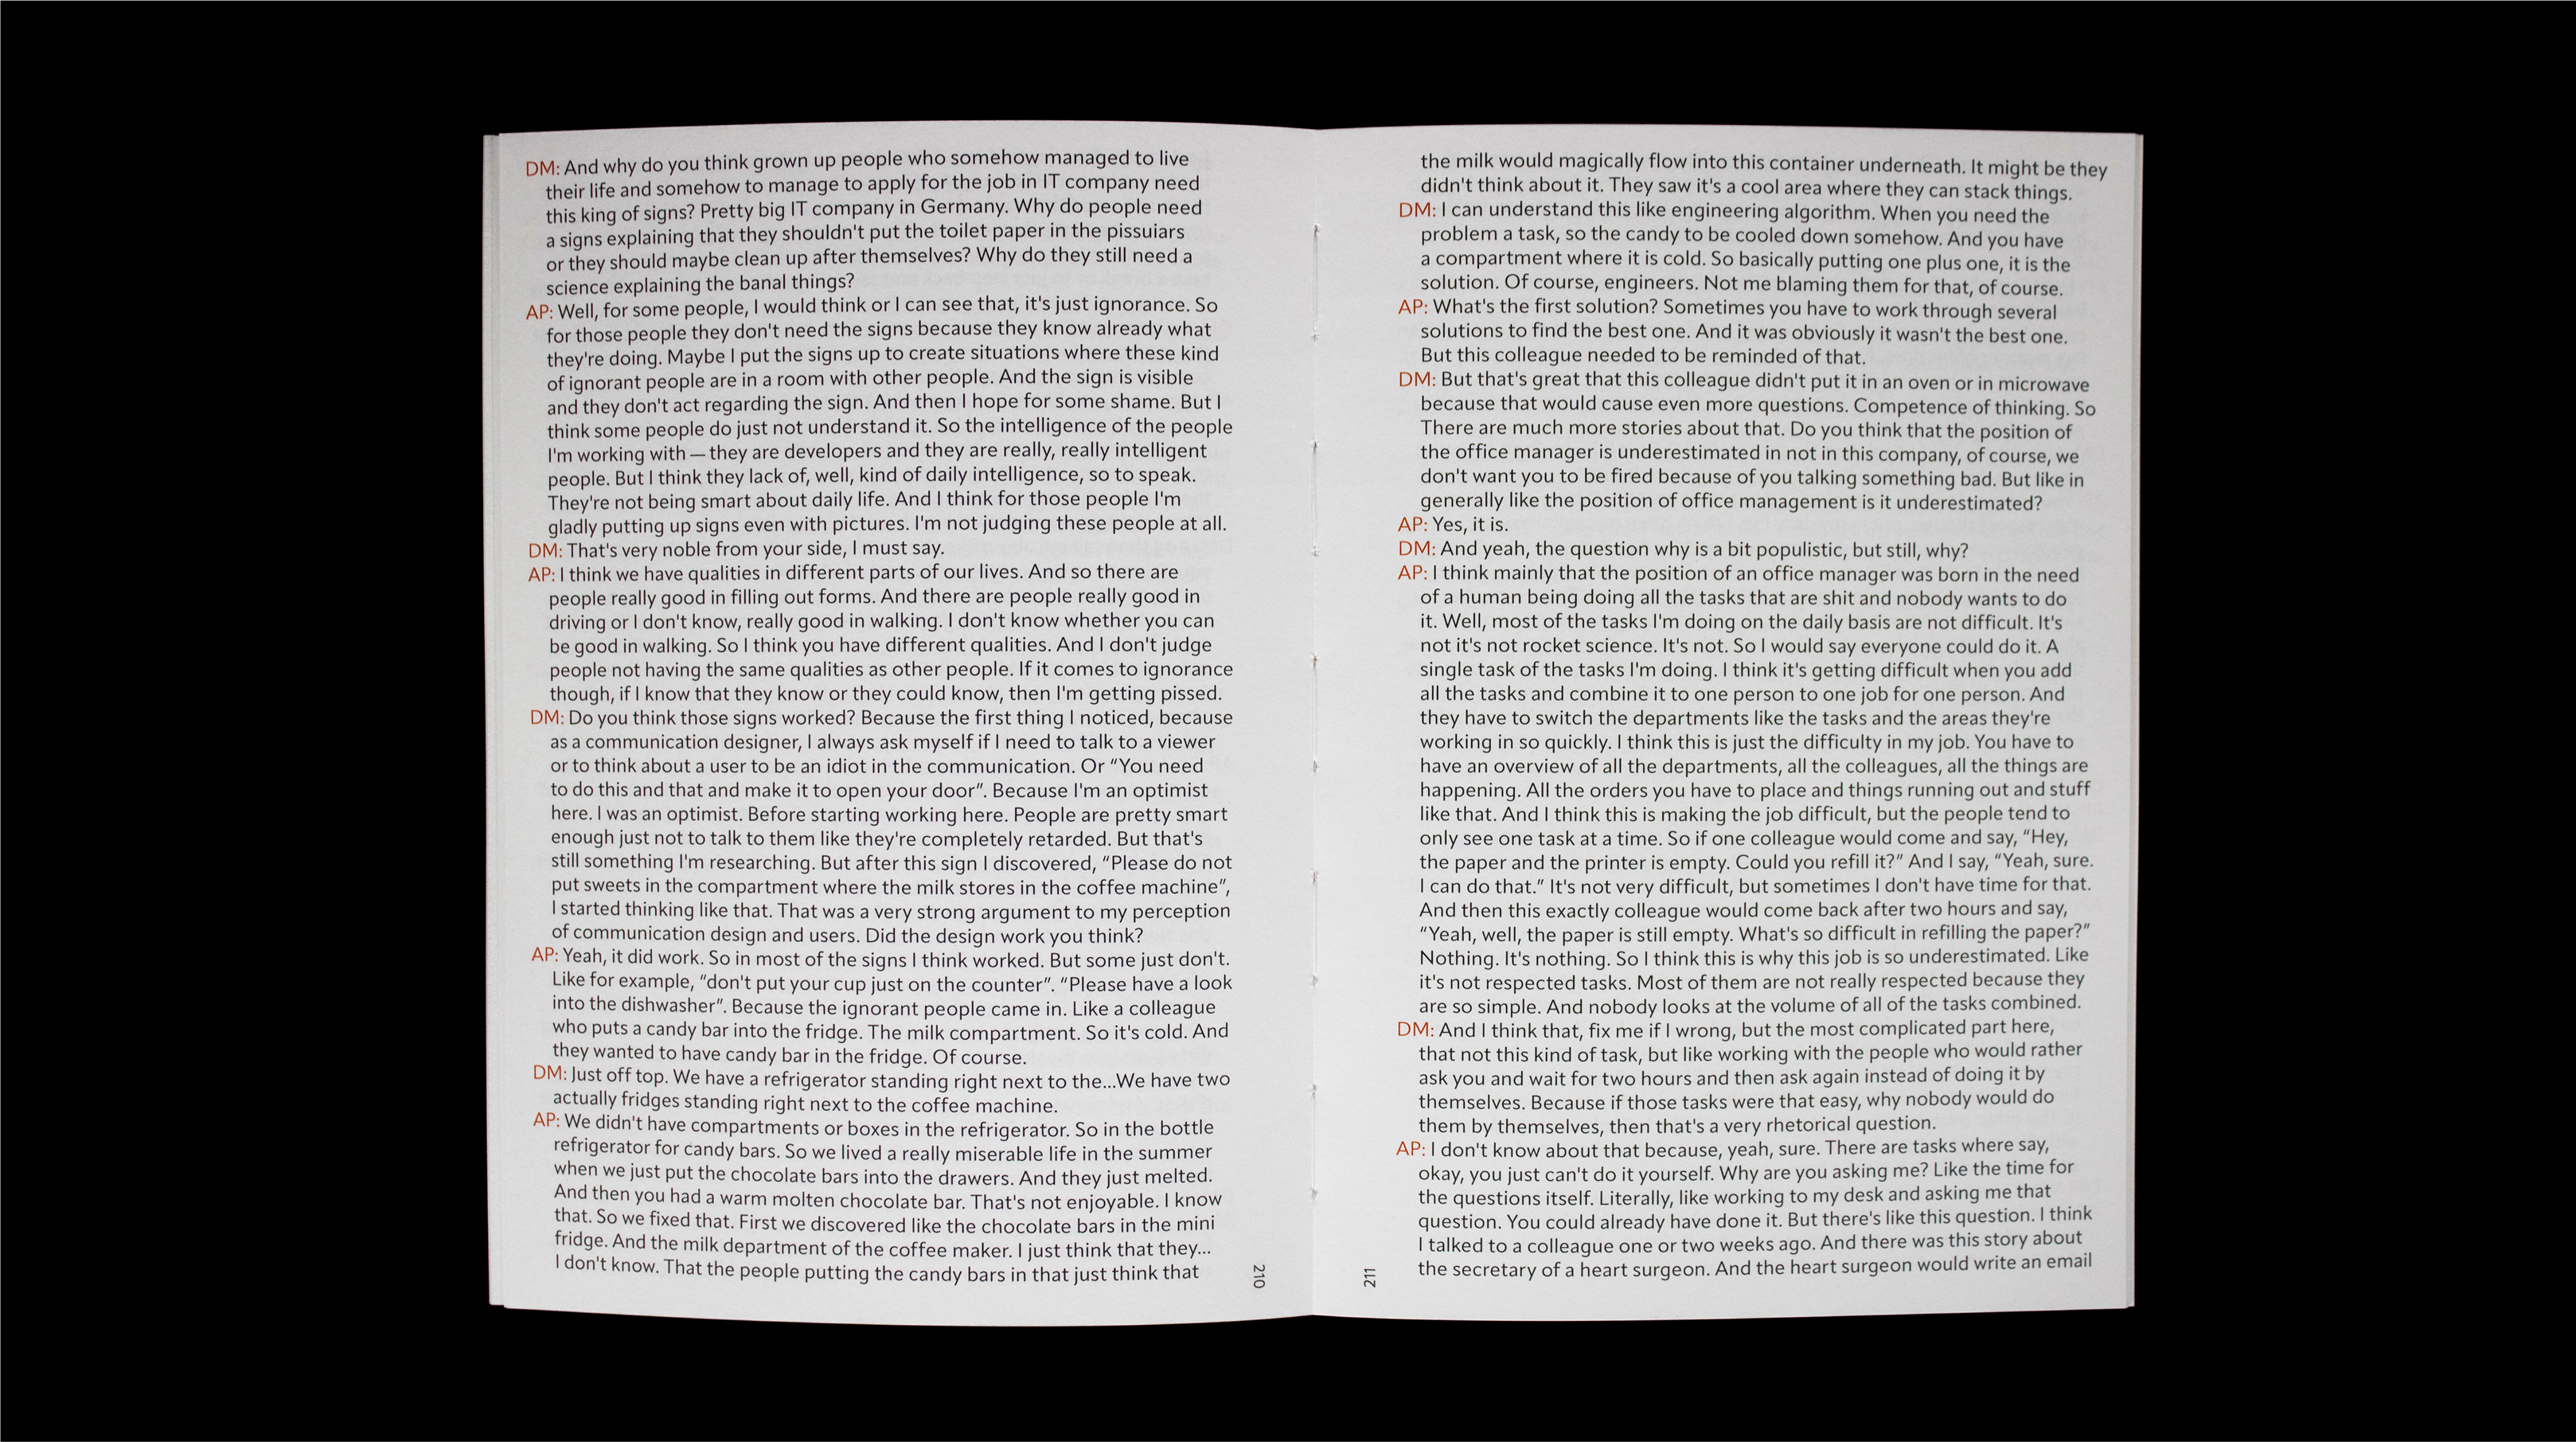 DM: And why do you think grown up people who somehow managed to live
their life and somehow to manage to apply for the job in IT company need
this king of signs? Pretty big IT company in Germany. Why do people need
a signs explaining that they shouldn't put the toilet paper in the pissuiars
or they should maybe clean up after themselves? Why do they still need a
science explaining the banal things?
AP: Well, for some people, I would think or I can see that, it's just ignorance. So
for those people they don't need the signs because they know already what
they're doing. Maybe I put the signs up to create situations where these kind
of ignorant people are in a room with other people. And the sign is visible
and they don't act regarding the sign. And then I hope for some shame. But I
think some people do just not understand it. So the intelligence of the people
I'm working with — they are developers and they are really, really intelligent
people. But I think they lack of, well, kind of daily intelligence, so to speak.
They're not being smart about daily life. And I think for those people I'm
gladly putting up signs even with pictures. I'm not judging these people at all.
DM: That's very noble from your side, I must say.
AP: I think we have qualities in different parts of our lives. And so there are
people really good in filling out forms. And there are people really good in
driving or I don't know, really good in walking. I don't know whether you can
be good in walking. So I think you have different qualities. And I don't judge
people not having the same qualities as other people. If it comes to ignorance
though, if I know that they know or they could know, then I'm getting pissed.
DM: Do you think those signs worked? Because the first thing I noticed, because
as a communication designer, I always ask myself if I need to talk to a viewer
or to think about a user to be an idiot in the communication. Or “You need
to do this and that and make it to open your door”. Because I'm an optimist
here. I was an optimist. Before starting working here. People are pretty smart
enough just not to talk to them like they're completely retarded. But that's
still something I'm researching. But after this sign I discovered, “Please do not
put sweets in the compartment where the milk stores in the coffee machine”,
I started thinking like that. That was a very strong argument to my perception
of communication design and users. Did the design work you think?
AP: Yeah, it did work. So in most of the signs I think worked. But some just don't.
Like for example, “don't put your cup just on the counter”. “Please have a look
into the dishwasher”. Because the ignorant people came in. Like a colleague
who puts a candy bar into the fridge. The milk compartment. So it's cold. And
they wanted to have candy bar in the fridge. Of course.
DM: Just off top. We have a refrigerator standing right next to the...We have two
actually fridges standing right next to the coffee machine.
AP: We didn't have compartments or boxes in the refrigerator. So in the bottle
refrigerator for candy bars. So we lived a really miserable life in the summer
when we just put the chocolate bars into the drawers. And they just melted.
And then you had a warm molten chocolate bar. That's not enjoyable. I know
that. So we fixed that. First we discovered like the chocolate bars in the mini
fridge. And the milk department of the coffee maker. I just think that they...
I don't know. That the people putting the candy bars in that just think that
210
the milk would magically flow into this container underneath. It might be they
didn't think about it. They saw it's a cool area where they can stack things.
DM: I can understand this like engineering algorithm. When you need the
problem a task, so the candy to be cooled down somehow. And you have
a compartment where it is cold. So basically putting one plus one, it is the
solution. Of course, engineers. Not me blaming them for that, of course.
AP: What's the first solution? Sometimes you have to work through several
solutions to find the best one. And it was obviously it wasn't the best one.
But this colleague needed to be reminded of that.
DM: But that's great that this colleague didn't put it in an oven or in microwave
because that would cause even more questions. Competence of thinking. So
There are much more stories about that. Do you think that the position of
the office manager is underestimated in not in this company, of course, we
don't want you to be fired because of you talking something bad. But like in
generally like the position of office management is it underestimated?
AP: Yes, it is.
DM: And yeah, the question why is a bit populistic, but still, why?
AP: I think mainly that the position of an office manager was born in the need
of a human being doing all the tasks that are shit and nobody wants to do
it. Well, most of the tasks I'm doing on the daily basis are not difficult. It's
not it's not rocket science. It's not. So I would say everyone could do it. A
single task of the tasks I'm doing. I think it's getting difficult when you add
all the tasks and combine it to one person to one job for one person. And
they have to switch the departments like the tasks and the areas they're
working in so quickly. I think this is just the difficulty in my job. You have to
have an overview of all the departments, all the colleagues, all the things are
happening. All the orders you have to place and things running out and stuff
like that. And I think this is making the job difficult, but the people tend to
only see one task at a time. So if one colleague would come and say, “Hey,
the paper and the printer is empty. Could you refill it?” And I say, “Yeah, sure.
I can do that.” It's not very difficult, but sometimes I don't have time for that.
And then this exactly colleague would come back after two hours and say,
“Yeah, well, the paper is still empty. What's so difficult in refilling the paper?”
Nothing. It's nothing. So I think this is why this job is so underestimated. Like
it's not respected tasks. Most of them are not really respected because they
are so simple. And nobody looks at the volume of all of the tasks combined.
DM: And I think that, fix me if I wrong, but the most complicated part here,
that not this kind of task, but like working with the people who would rather
ask you and wait for two hours and then ask again instead of doing it by
themselves. Because if those tasks were that easy, why nobody would do
them by themselves, then that's a very rhetorical question.
AP: I don't know about that because, yeah, sure. There are tasks where say,
okay, you just can't do it yourself. Why are you asking me? Like the time for
the questions itself. Literally, like working to my desk and asking me that
question. You could already have done it. But there's like this question. I think
I talked to a colleague one or two weeks ago. And there was this story about
the secretary of a heart surgeon. And the heart surgeon would write an email
211